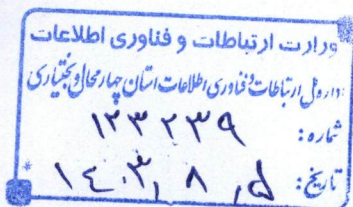 وزارت ارتباطات و فناوری اطلاعات
اداره کل ارتباطات و فناوری اطلاعات استان چهارمحال و بختیاری
شماره: ۱۲۳۲۳۹
تاریخ: ۱۴۰۳, ۸ ,۵